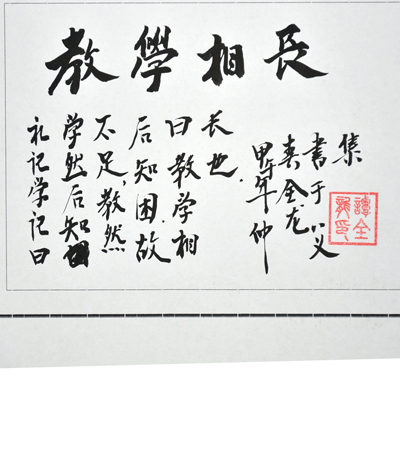 教學相長
礼记学记曰
学然后知
不足,教然
后知困.故
曰教学相
长也.
甲午年仲
春全龙
书于义
集
譚全
龍印